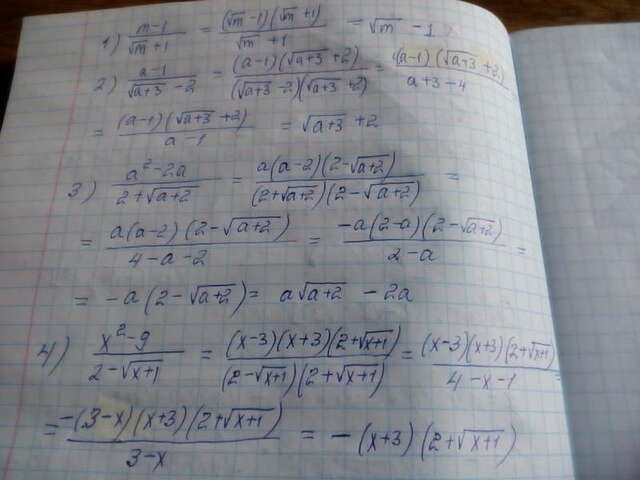 1) (m-1)/(√m+1) = ((√m-1)(√m+1))/(√m+1) = √m - 1
2) (a-1)/(√(a+3)-2) = ((a-1)(√(a+3)+2))/((√(a+3)-2)(√(a+3)+2)) = ((a-1)(√(a+3)+2))/(a+3-4)
= ((a-1)(√(a+3)+2))/(a-1) = √(a+3)+2
3) (a²-2a)/(2+√(a+2)) = (a(a-2)(2-√(a+2)))/((2+√(a+2))(2-√(a+2))) =
= (a(a-2)(2-√(a+2)))/(4-a-2) = (-a(2-a)(2-√(a+2)))/(2-a) =
= -a(2-√(a+2)) = a√(a+2) - 2a
4) (x²-9)/(2-√(x+1)) = ((x-3)(x+3)(2+√(x+1)))/((2-√(x+1))(2+√(x+1))) = ((x-3)(x+3)(2+√(x+1)))/(4-x-1) =
= (-(3-x)(x+3)(2+√(x+1)))/(3-x) = -(x+3)(2+√(x+1))